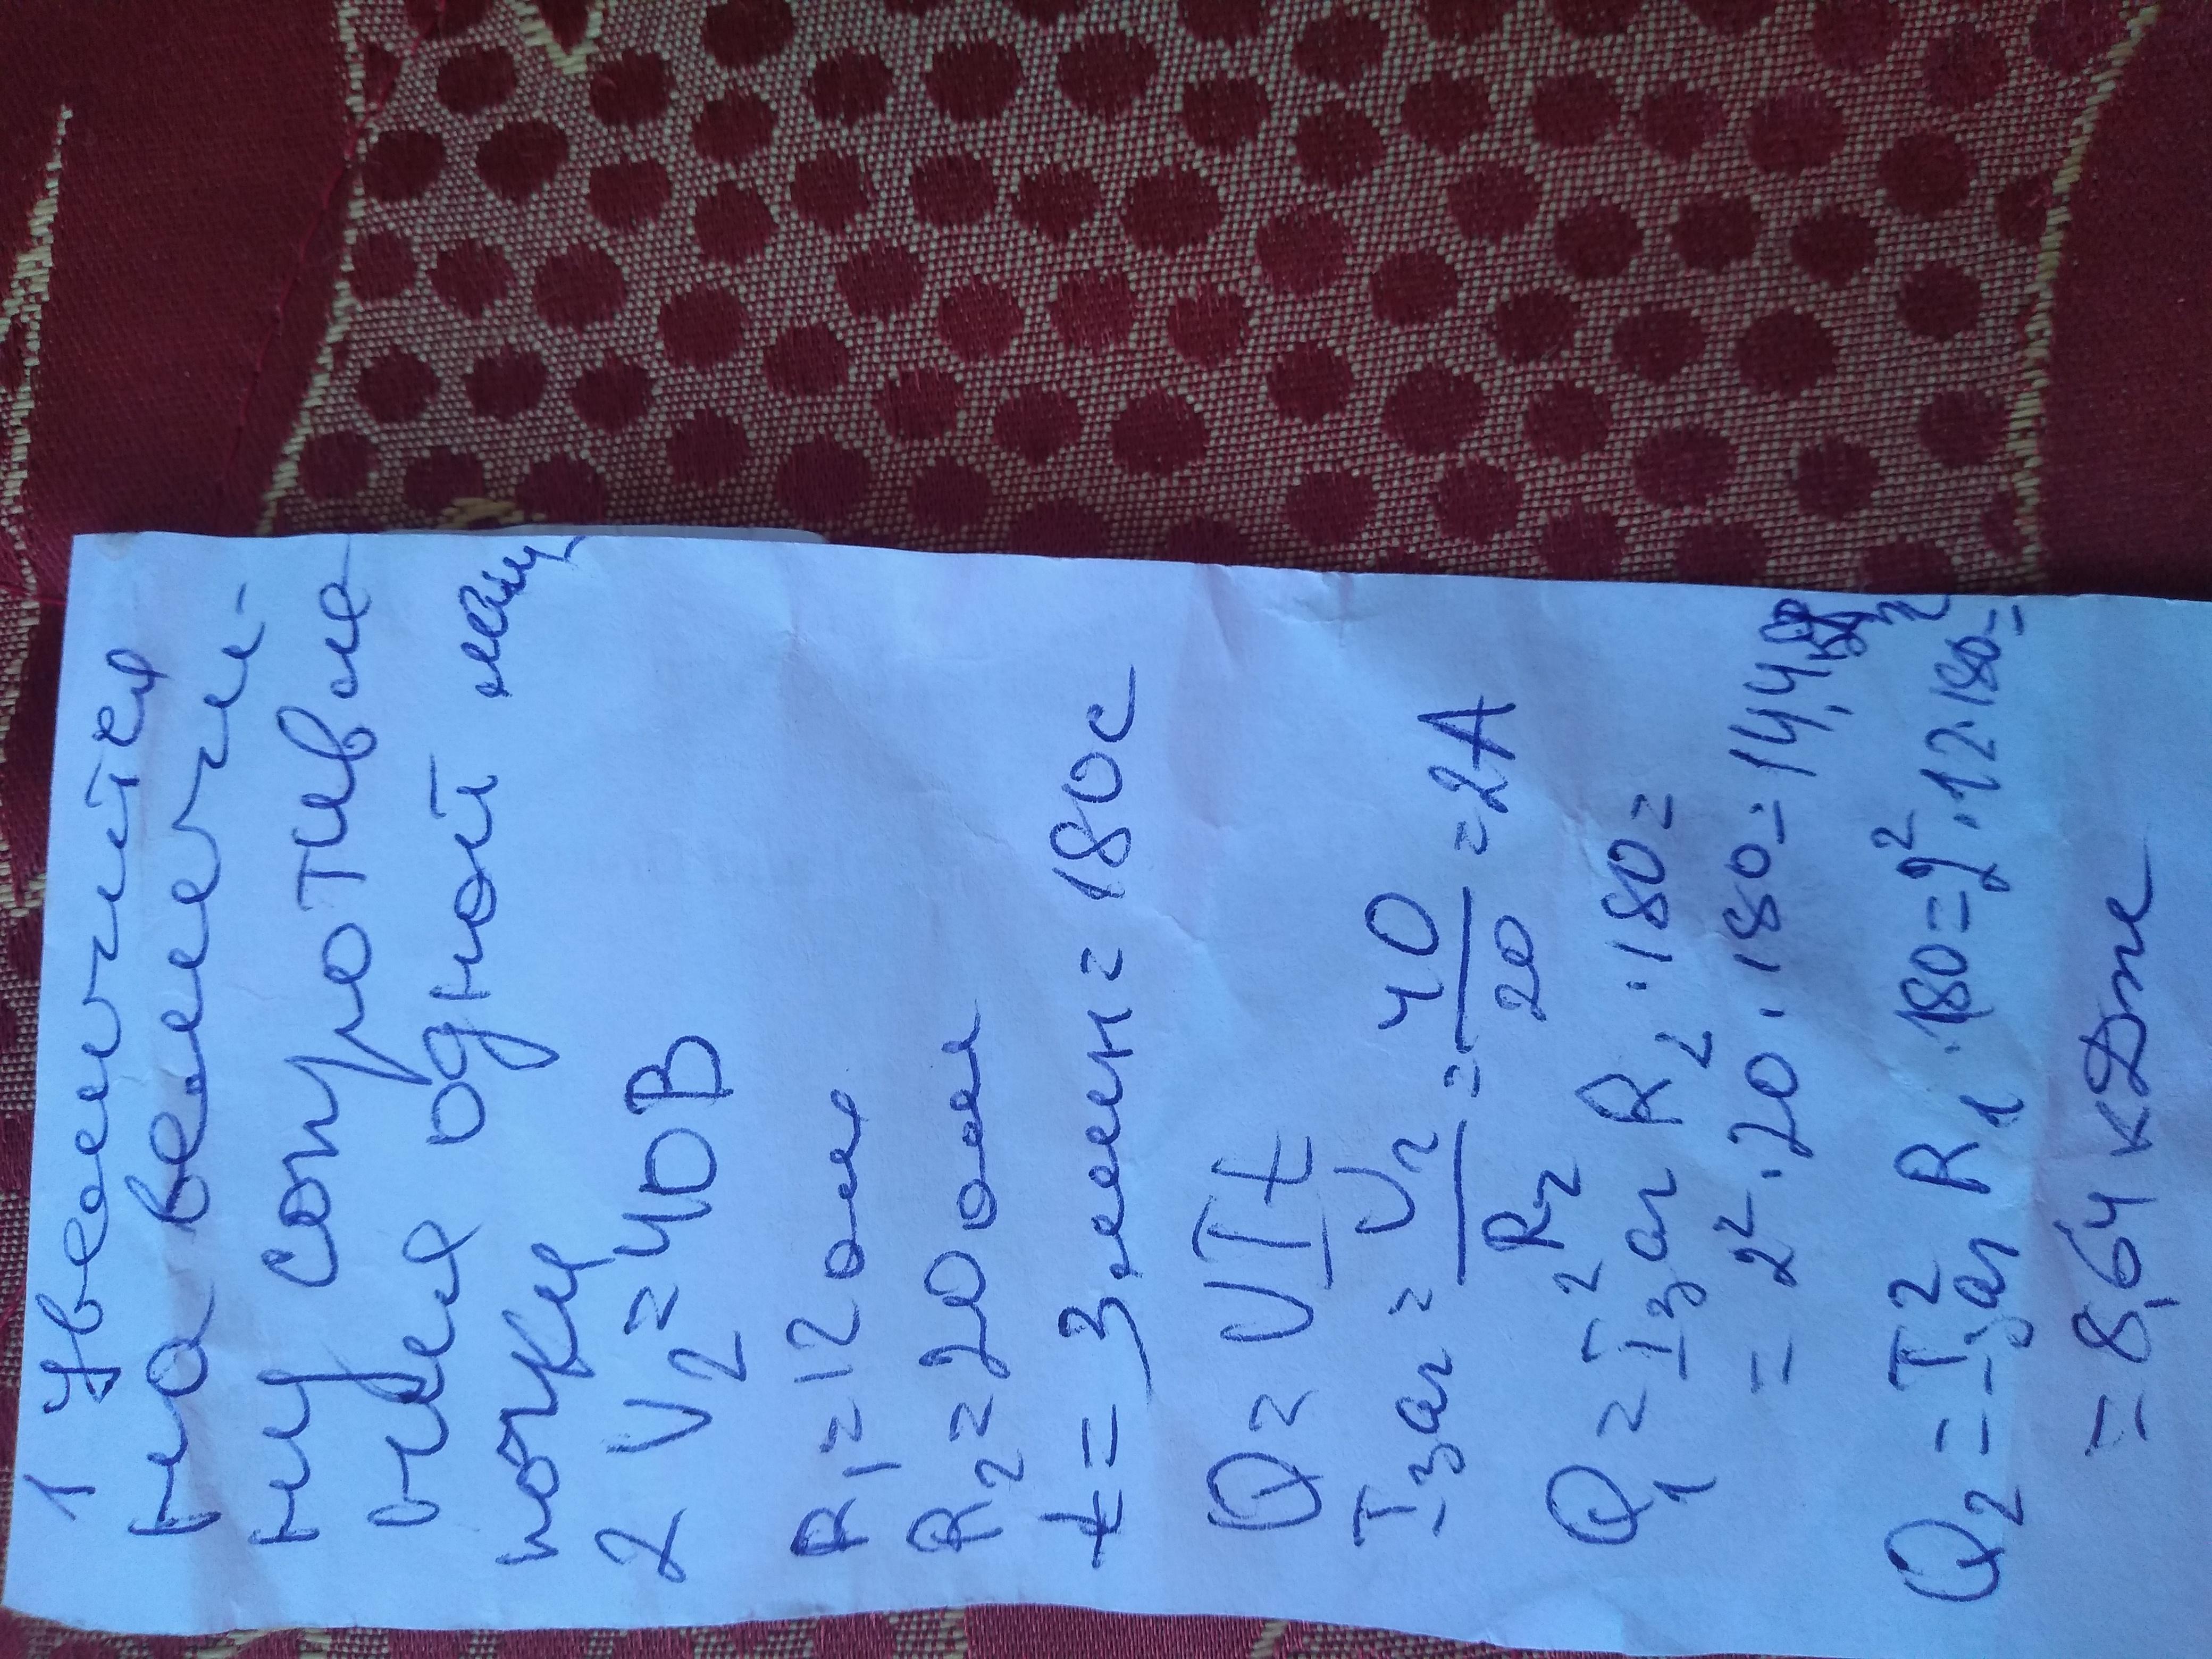 1 Увеличится
на величи-
ну сопротивле-
ния одной лам
почки
2 U₂=40В
R₁=12 ом
R₂=20 ом
t=3 мин=180с
Q=UIt
Iзаг=U₂/R₂=40/20=2А
Q₁=I²заг R₂·180=
=2²·20·180=14,4
Q₂=I²заг R₁·180=2²·12·180=
=8,64 кДж